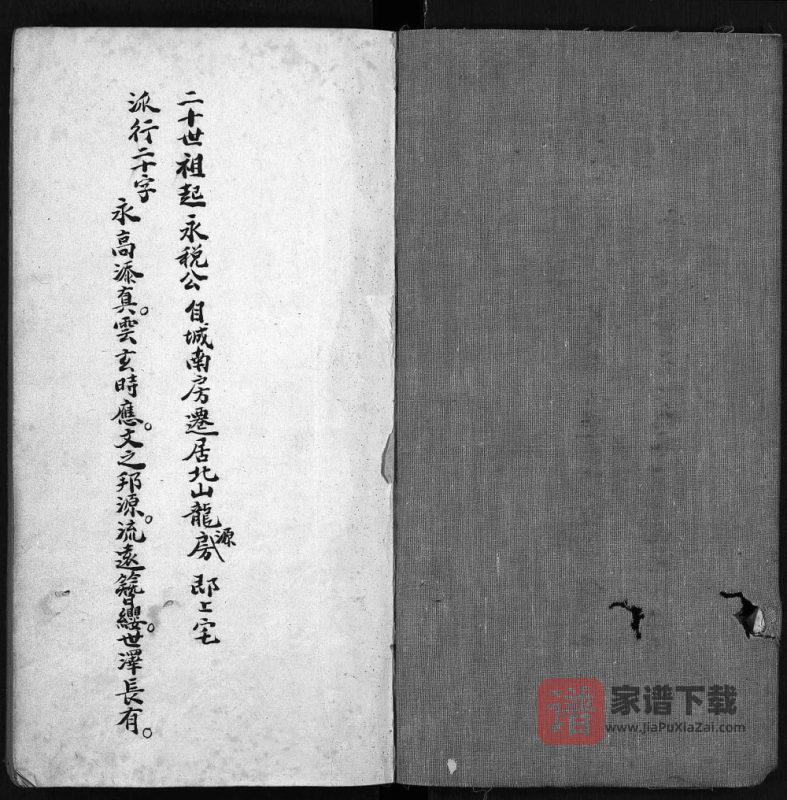 二十世祖起永税公自城南房遷居北山龍源房 即上宅
派行二十字
永高添真。雲玄時應。文之邦源。流遠簪纓。世澤長有。
谱 家谱下载
www.JiaPuXiaZai.com